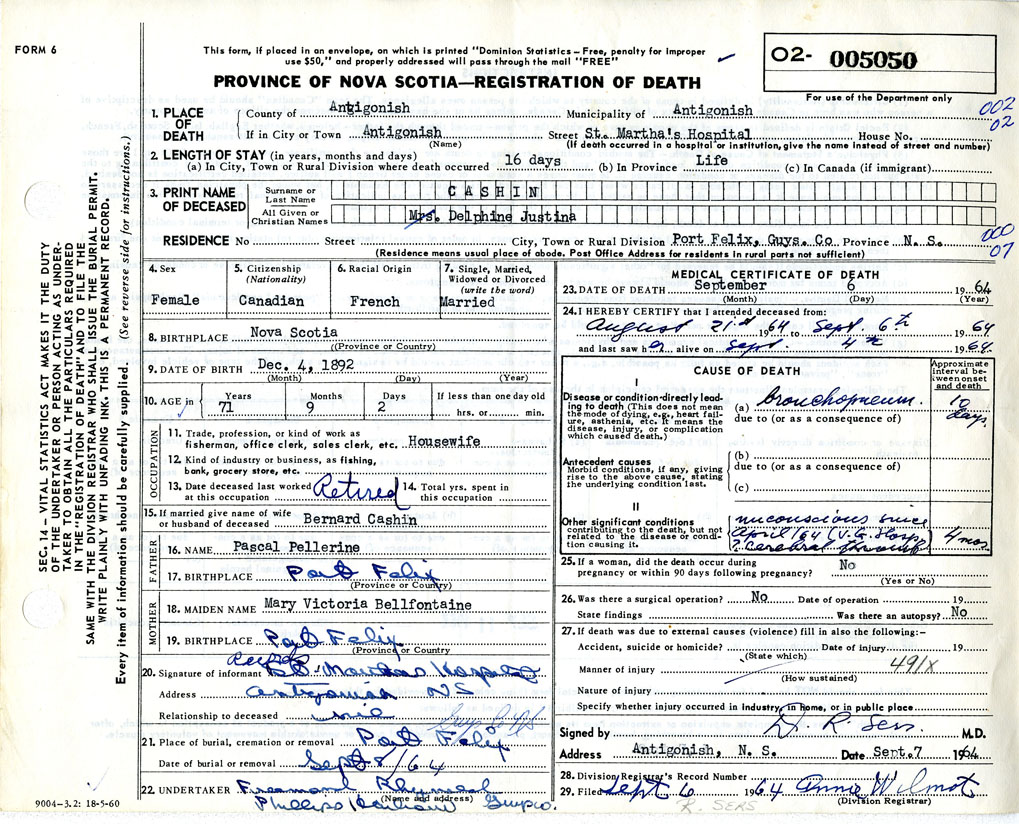 FORM 6
This form, if placed in an envelope, on which is printed "Dominion Statistics—Free, penalty for improper
use $50," and properly addressed will pass through the mail "FREE"
PROVINCE OF NOVA SCOTIA—REGISTRATION OF DEATH
O2- 005050
For use of the Department only
002
02
1. PLACE OF DEATH
County of Antigonish Municipality of Antigonish
If in City or Town Antigonish Street St. Martha's Hospital House No.
(Name) (If death occurred in a hospital or institution, give the name instead of street and number)
2. LENGTH OF STAY (in years, months and days)
(a) In City, Town or Rural Division where death occurred 16 days (b) In Province Life (c) In Canada (if immigrant)
3. PRINT NAME OF DECEASED
Surname or Last Name CASHIN
All Given or Christian Names Mrs. Delphine Justina
RESIDENCE No Street City, Town or Rural Division Port Felix, Guys. Co Province N. S.
(Residence means usual place of abode. Post Office Address for residents in rural parts not sufficient)
000
07
4. Sex
Female
5. Citizenship
(Nationality)
Canadian
6. Racial Origin
French
7. Single, Married, Widowed or Divorced
(write the word)
Married
8. BIRTHPLACE Nova Scotia
((Province or Country)
9. DATE OF BIRTH Dec. 4, 1892
(Month) (Day) (Year)
10. AGE in
Years 71
Months 9
Days 2
If less than one day old
hrs. or min.
OCCUPATION
11. Trade, profession, or kind of work as
fisherman, office clerk, sales clerk, etc. Housewife
12. Kind of industry or business, as fishing,
bank, grocery store, etc.
13. Date deceased last worked
at this occupation Retired
14. Total yrs. spent in
this occupation
15. If married give name of wife
or husband of deceased Bernard Cashin
FATHER
16. NAME Pascal Pellerine
17. BIRTHPLACE Port Felix
(Province or Country)
MOTHER
18. MAIDEN NAME Mary Victoria Bellfontaine
19. BIRTHPLACE Port Felix
(Province or Country
20. Signature of informant St Marthas Hospital
Address Antigonish NS
Relationship to deceased
21. Place of burial, cremation or removal Port Felix
Date of burial or removal Sept 8/64
22 UNDERTAKER
(Name and address)
9004-3.2: 18-5-60
MEDICAL CERTIFICATE OF DEATH
23. DATE OF DEATH September 6 1964
(Month) (Day) (Year)
24. I HEREBY CERTIFY that I attended deceased from:
August 21st 1964 to Sept. 6th 1964
and last saw her alive on Sept. 4th 1964
CAUSE OF DEATH
Approximate interval between onset and death
I
Disease or condition directly leading to death (This does not mean the mode of dying, e.g., heart failure, asthenia, etc. It means the disease, injury, or complication which caused death.)
(a) bronchopneum. 10 days
due to (or as a consequence of)
Antecedent causes
Morbid conditions, if any, giving rise to the above cause, stating the underlying condition last.
(b)
due to (or as a consequence of)
(c)
II
Other significant conditions
contributing to the death, but not related to the disease or condition causing it.
unconscious since
April/64 (V.G. Hosp)
? Cerebral thromb 4 mos
25. If a woman, did the death occur during
pregnancy or within 90 days following pregnancy? No
(Yes or No)
26. Was there a surgical operation? No Date of operation 19
State findings Was there an autopsy? No
27. If death was due to external causes (violence) fill in also the following:—
Accident, suicide or homicide? Date of injury 19
(State which)
Manner of injury 491X
(How sustained)
Nature of injury
Specify whether injury occurred in industry, in home, or in public place
Signed by R Sers. M.D.
Address Antigonish, N. S. Date Sept. 7 1964
28. Division Registrar's Record Number
29. Filed Sept 6 1964 Annie Wilmot
(Division Registrar)
R. SERS
SEC. 14—VITAL STATISTICS ACT MAKES IT THE DUTY
OF THE UNDERTAKER OR PERSON ACTING AS UNDER-
TAKER TO OBTAIN ALL THE PARTICULARS REQUIRED
IN THE "REGISTRATION OF DEATH" AND TO FILE THE
SAME WITH THE DIVISION REGISTRAR WHO SHALL ISSUE THE BURIAL PERMIT.
WRITE PLAINLY WITH UNFADING INK. THIS IS A PERMANENT RECORD.
Every item of information should be carefully supplied. (See reverse side for instructions.)